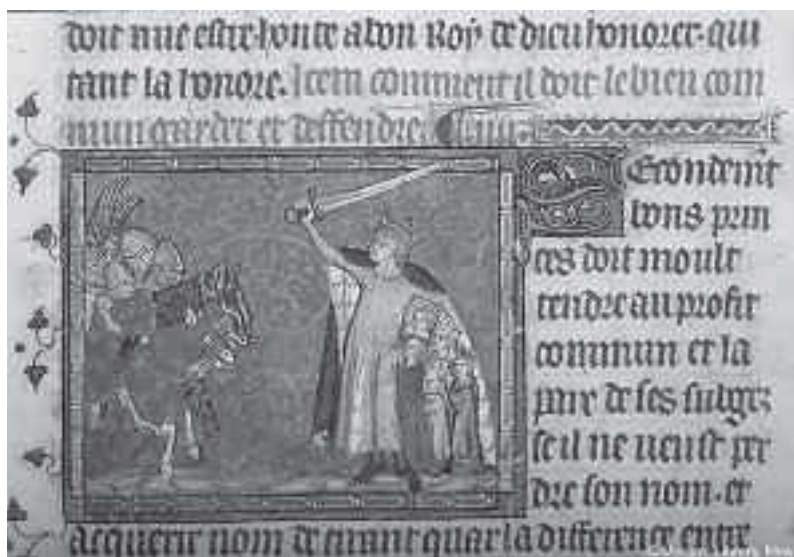 doit nue estre honte a bon Roy de dieu honorer. qui
tant la honore. Item comment il doit le bien com
mun garder et deffendre.
Secondemt
bons prin
ces doit moult
tendre au profit
commun et la
paix de ses subgez
se il ne veust per
dre son nom. et
acquerir nom de tirant quar la difference entre